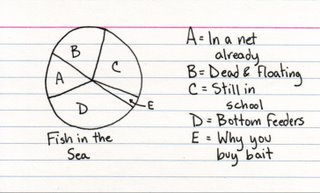 B
C
A
D
E
Fish in the
Sea
A = In a net
already
B = Dead & Floating
C = Still in
school
D = Bottom Feeders
E = Why you
buy bait